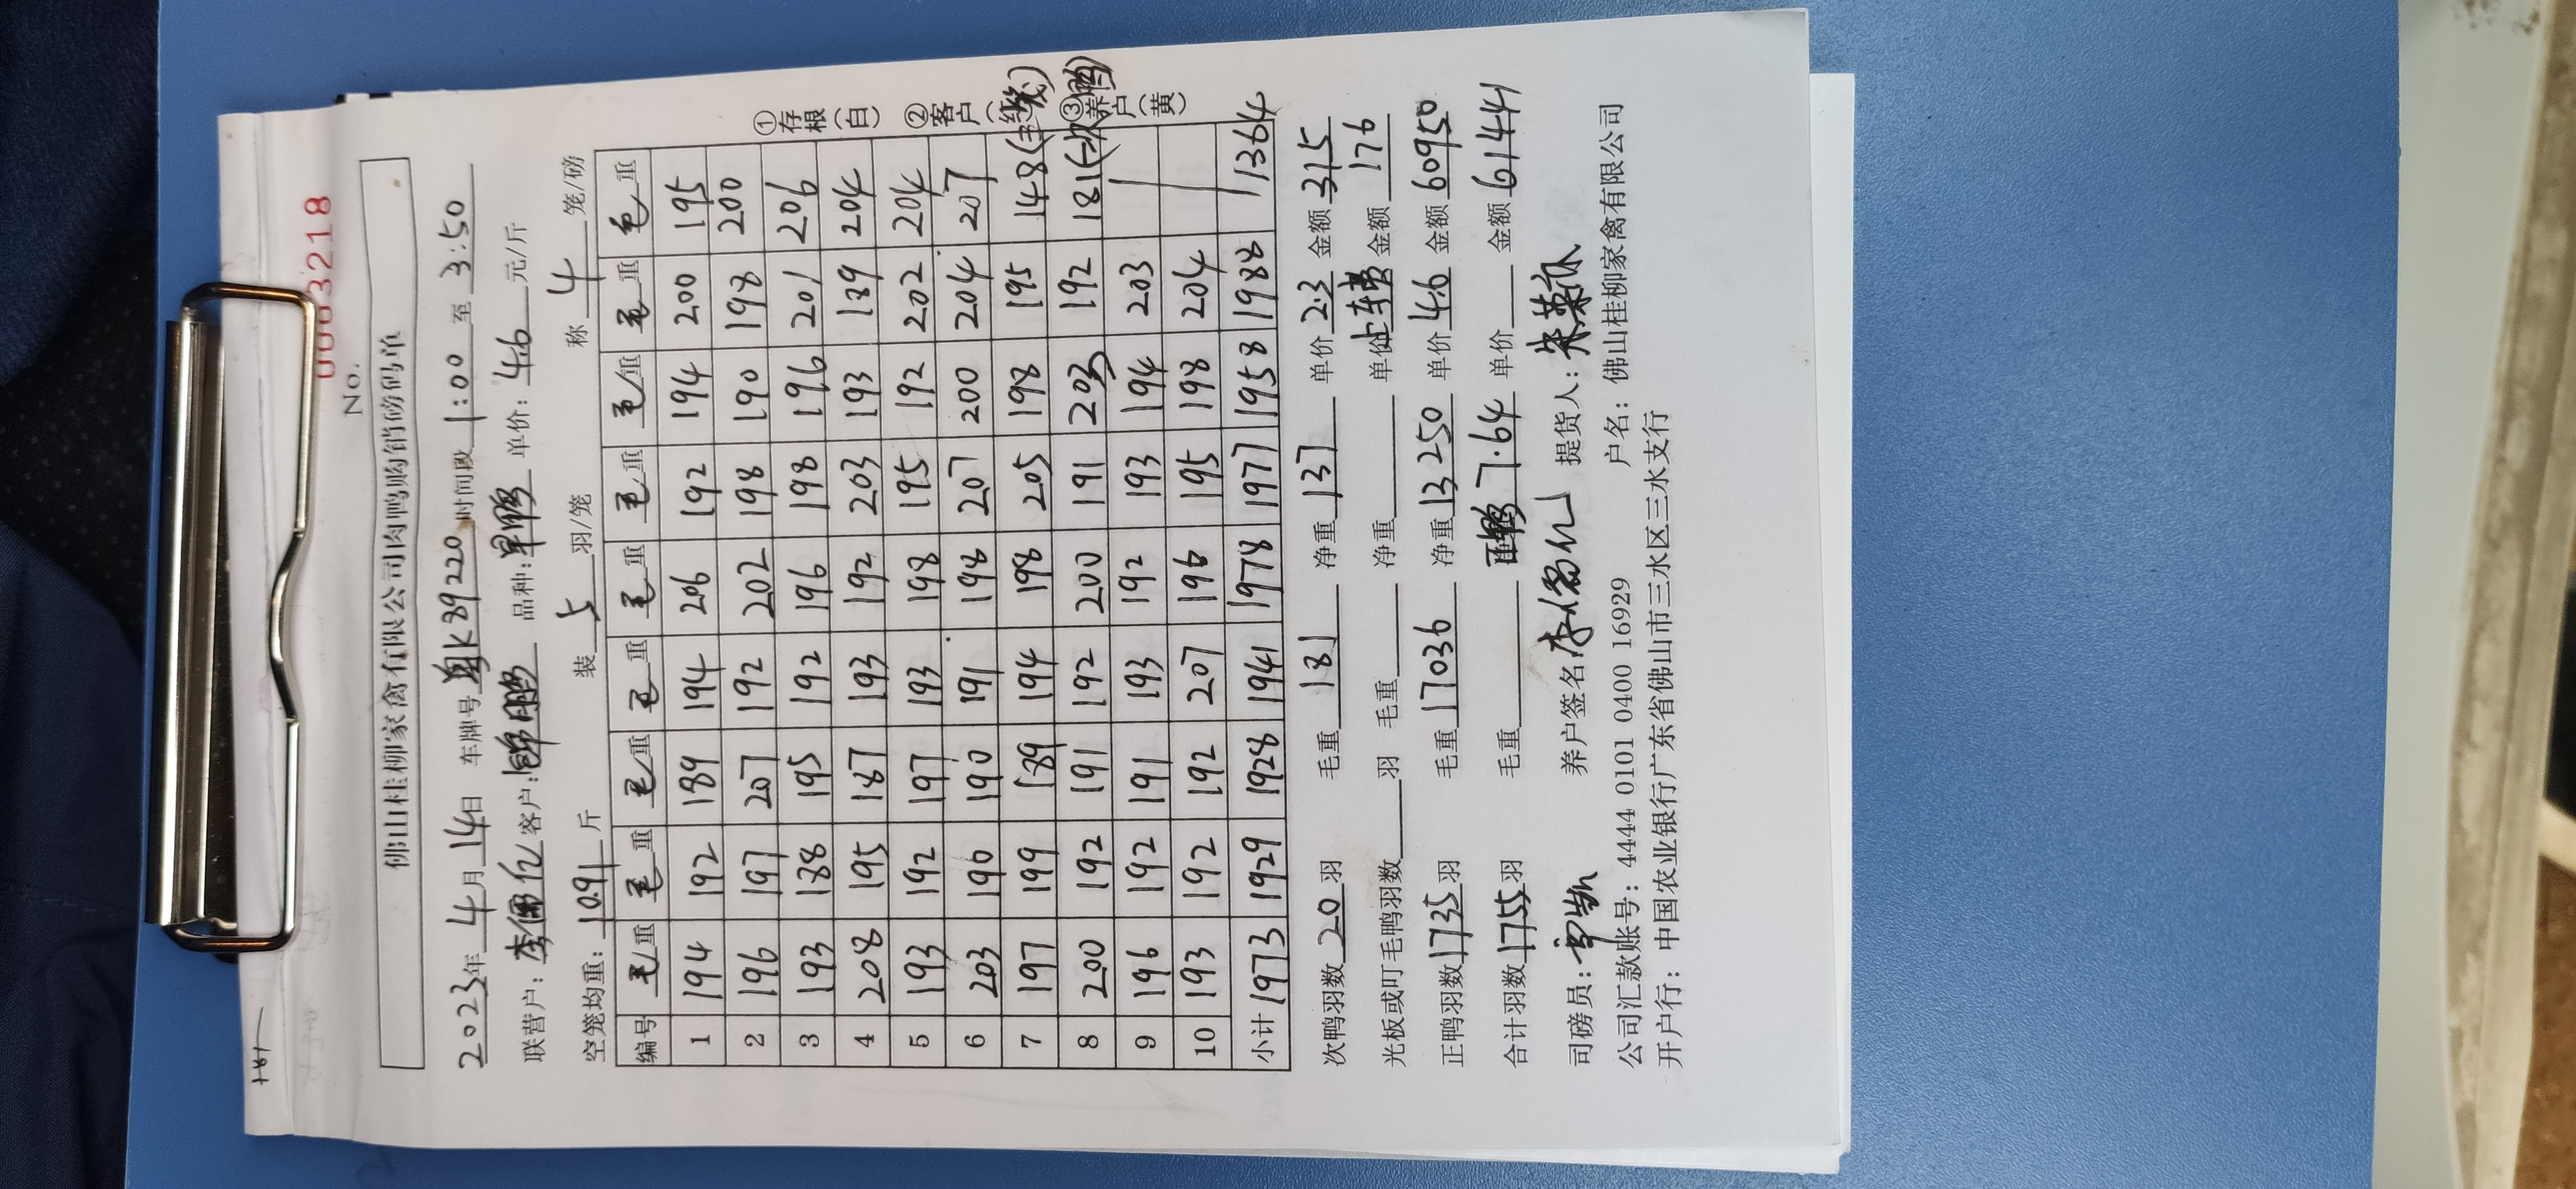 181
No. 0003218
佛山桂柳家禽有限公司肉鸭购销磅码单
2023年4月14日 车牌号粤K89220 时间段1:00至3:50
联营户:李儒亿 客户: 品种: 单价:4.6元/斤
空笼均重:10.91斤 装5羽/笼 称4笼/磅
编号 毛重 毛重 毛重 毛重 毛重 毛重 毛重 毛重 毛重
1 194 192 189 194 206 192 194 200 195
2 196 197 207 192 202 198 190 198 200
3 193 188 195 192 196 198 196 201 206
4 208 195 187 193 192 203 193 189 204
5 193 192 197 193 198 195 192 202 204
6 203 190 190 191 198 207 200 204 207
7 197 199 189 194 198 205 198 195 148
8 200 192 191 192 200 191 203 192 181
9 196 192 191 193 192 193 194 203
10 193 192 192 207 196 195 198 204
小计 1973 1929 1928 1941 1978 1977 1958 1988 1364
①存根(白) ②客户(红) ③养户(黄)
次鸭羽数20羽 毛重181 净重137 单价2.3 金额315
光板或叮毛鸭羽数 羽 毛重 净重 单价上车费 金额176
正鸭羽数1735羽 毛重17036 净重13250 单价4.6 金额60950
合计羽数1755羽 毛重 正鸭7.64 单价 金额61441
司磅员: 养户签名:李儒亿 提货人:
公司汇款账号:4444 0101 0400 16929 户名:佛山桂柳家禽有限公司
开户行:中国农业银行广东省佛山市三水区三水支行